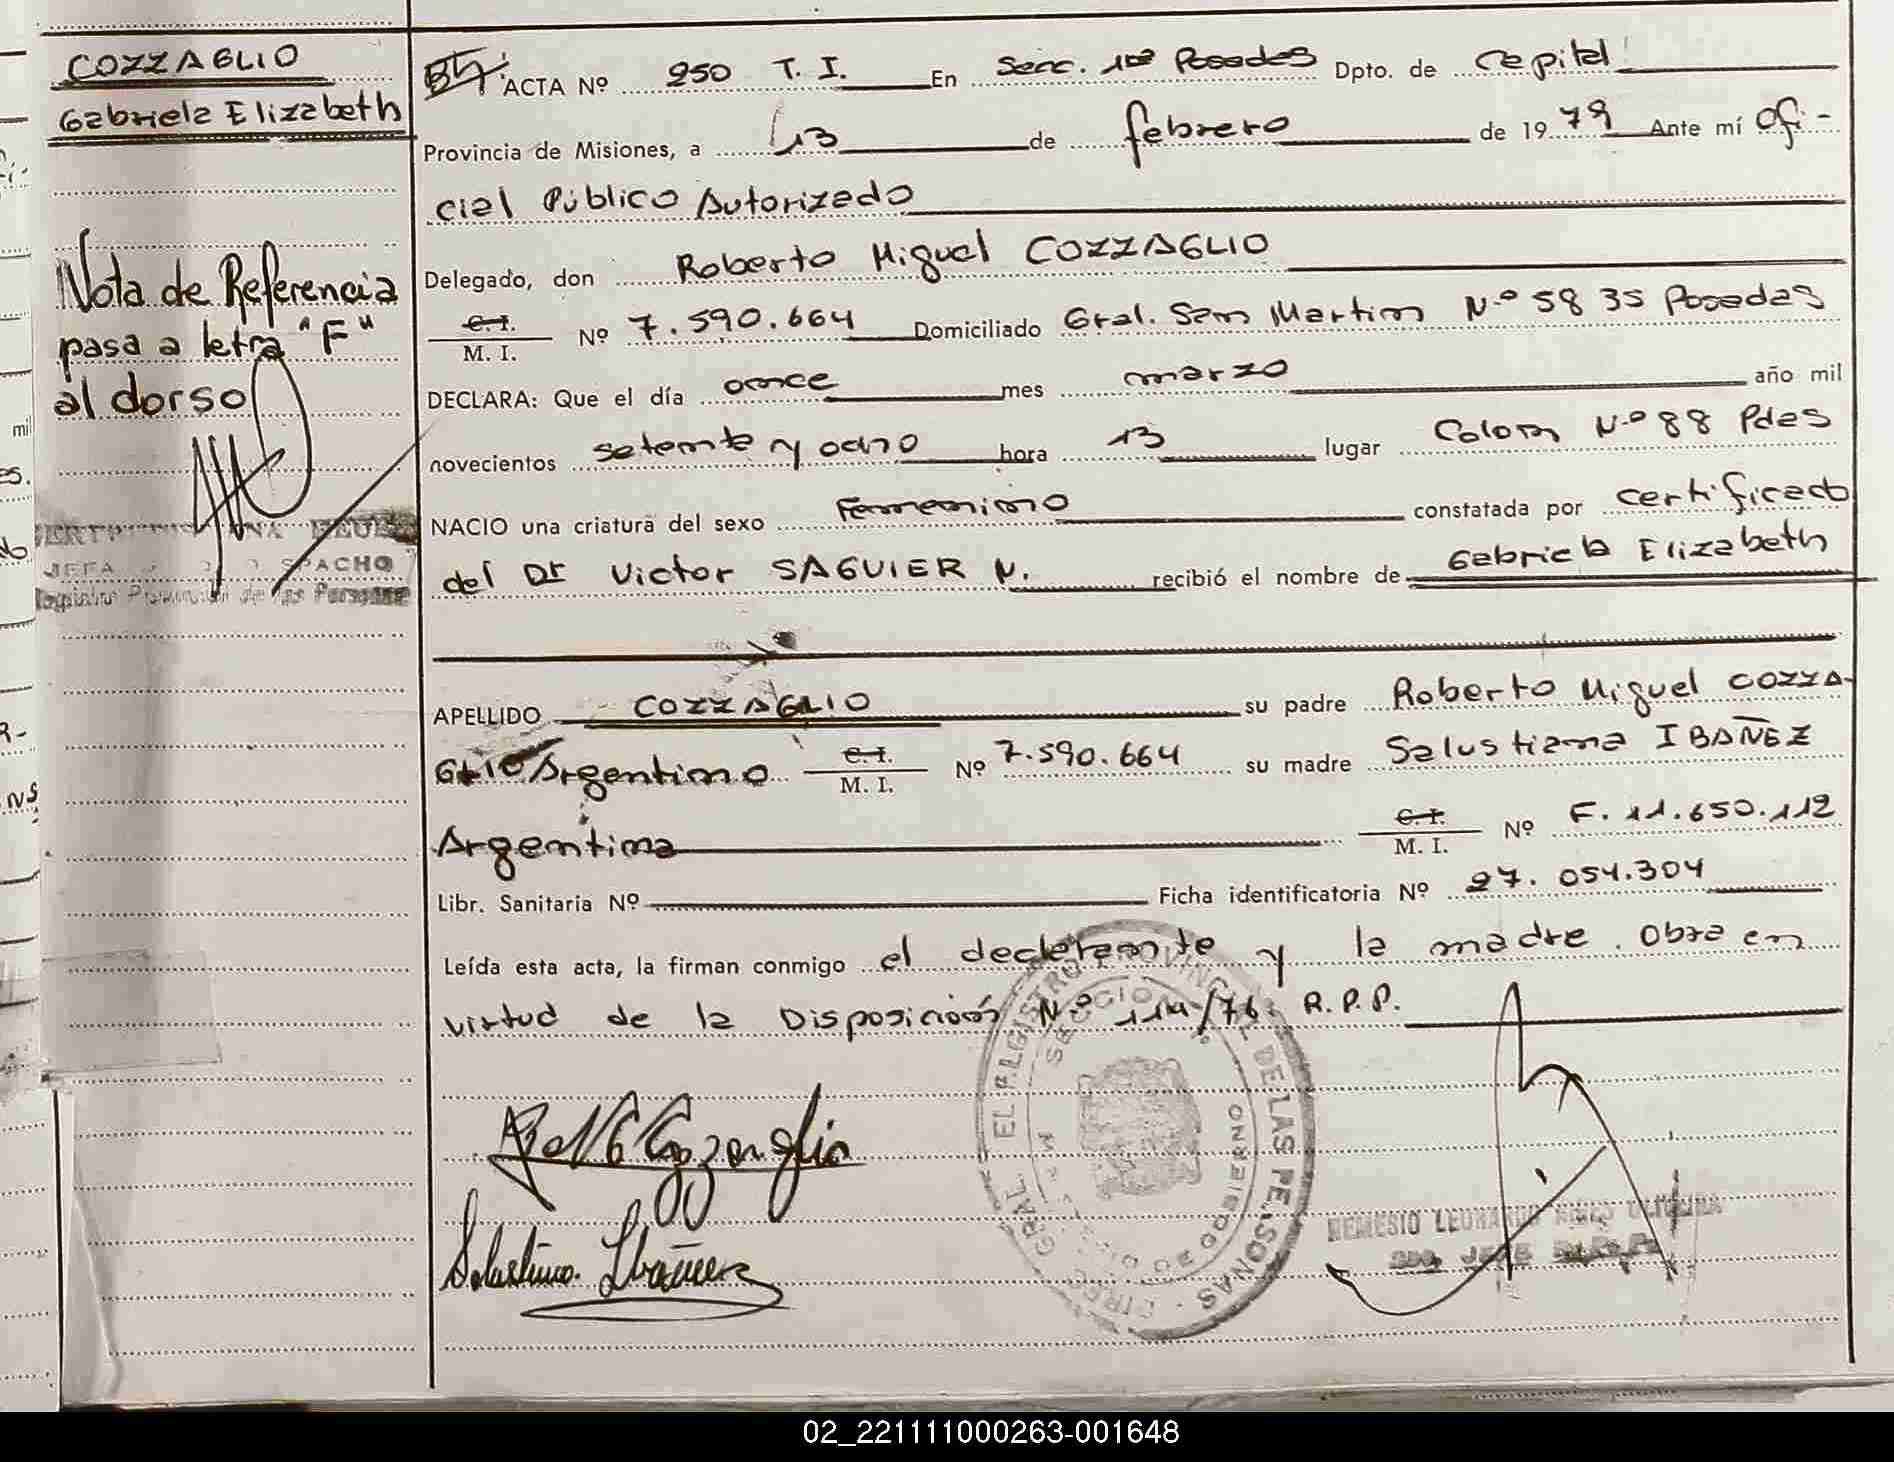 COZZAGLIO
Gabriela Elizabeth
Nota de Referencia
pasa a letra "F"
al dorso
JEFA SPACHO
Registro Provincial de las Personas
ACTA Nº 250 T. I. En Secc. 1ra Posadas Dpto. de Capital
Provincia de Misiones, a 13 de febrero de 1979 Ante mí Ofi-
cial Público Autorizado
Delegado, don Roberto Miguel COZZAGLIO
C.I.
M. I. Nº 7.590.664 Domiciliado Gral. San Martin Nº 5835 Posadas
DECLARA: Que el día once mes marzo año mil
novecientos setenta y ocho hora 13 lugar Colon Nº 88 Pdas
NACIO una criatura del sexo Femenino constatada por certificado
del Dr Victor SAGUIER N. recibió el nombre de Gabriela Elizabeth
APELLIDO COZZAGLIO su padre Roberto Miguel COZZA-
GLIO Argentino C.I. M. I. Nº 7.590.664 su madre Salustiana IBAÑEZ
Argentina C.I. M. I. Nº F. 11.650.112
Libr. Sanitaria Nº Ficha identificatoria Nº 27.054.304
Leída esta acta, la firman conmigo el declarante y la madre. Obra en
virtud de la Disposición Nº 114/76 R.P.P.
Salustiana Ibañez
DIREC. GRAL. EL REGISTRO PROVINCIAL DE LAS PERSONAS
GOBIERNO
NEMESIO LEONARDO
02_221111000263-001648